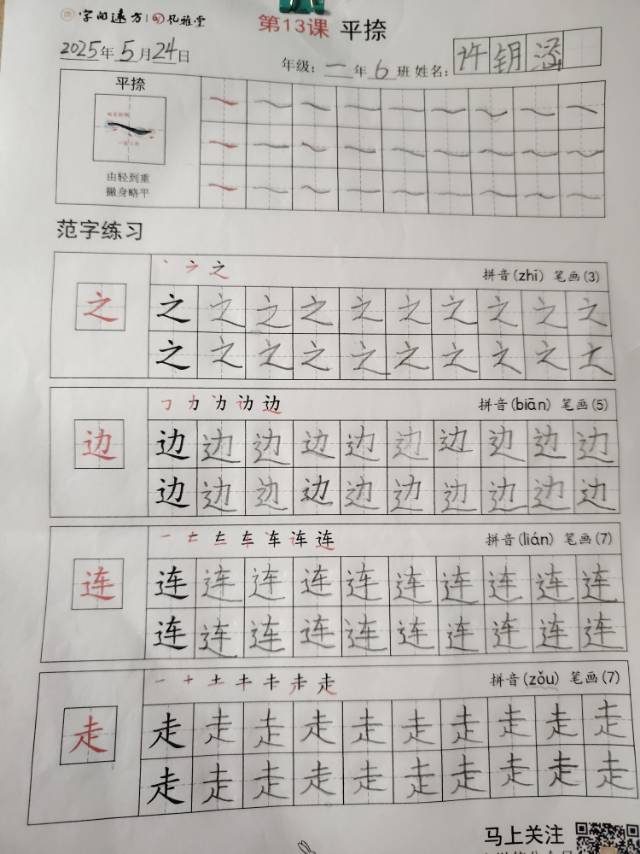 字间速方 风雅堂
第13课 平捺
2025年5月24日
年级：一年6班 姓名：许钥涵
平捺
由轻到重
撇身略平
范字练习
丶 ㇇ 之
拼音(zhī) 笔画(3)
之 之 之 之 之 之 之 之 之 之 之
之 之 之 之 之 之 之 之 之 之
拼音(biān) 笔画(5)
边 边 边 边 边 边 边 边 边 边 边
边 边 边 边 边 边 边 边 边 边
拼音(lián) 笔画(7)
连 连 连 连 连 连 连 连 连 连 连
连 连 连 连 连 连 连 连 连 连
拼音(zǒu) 笔画(7)
走 走 走 走 走 走 走 走 走 走 走
走 走 走 走 走 走 走 走 走 走
马上关注